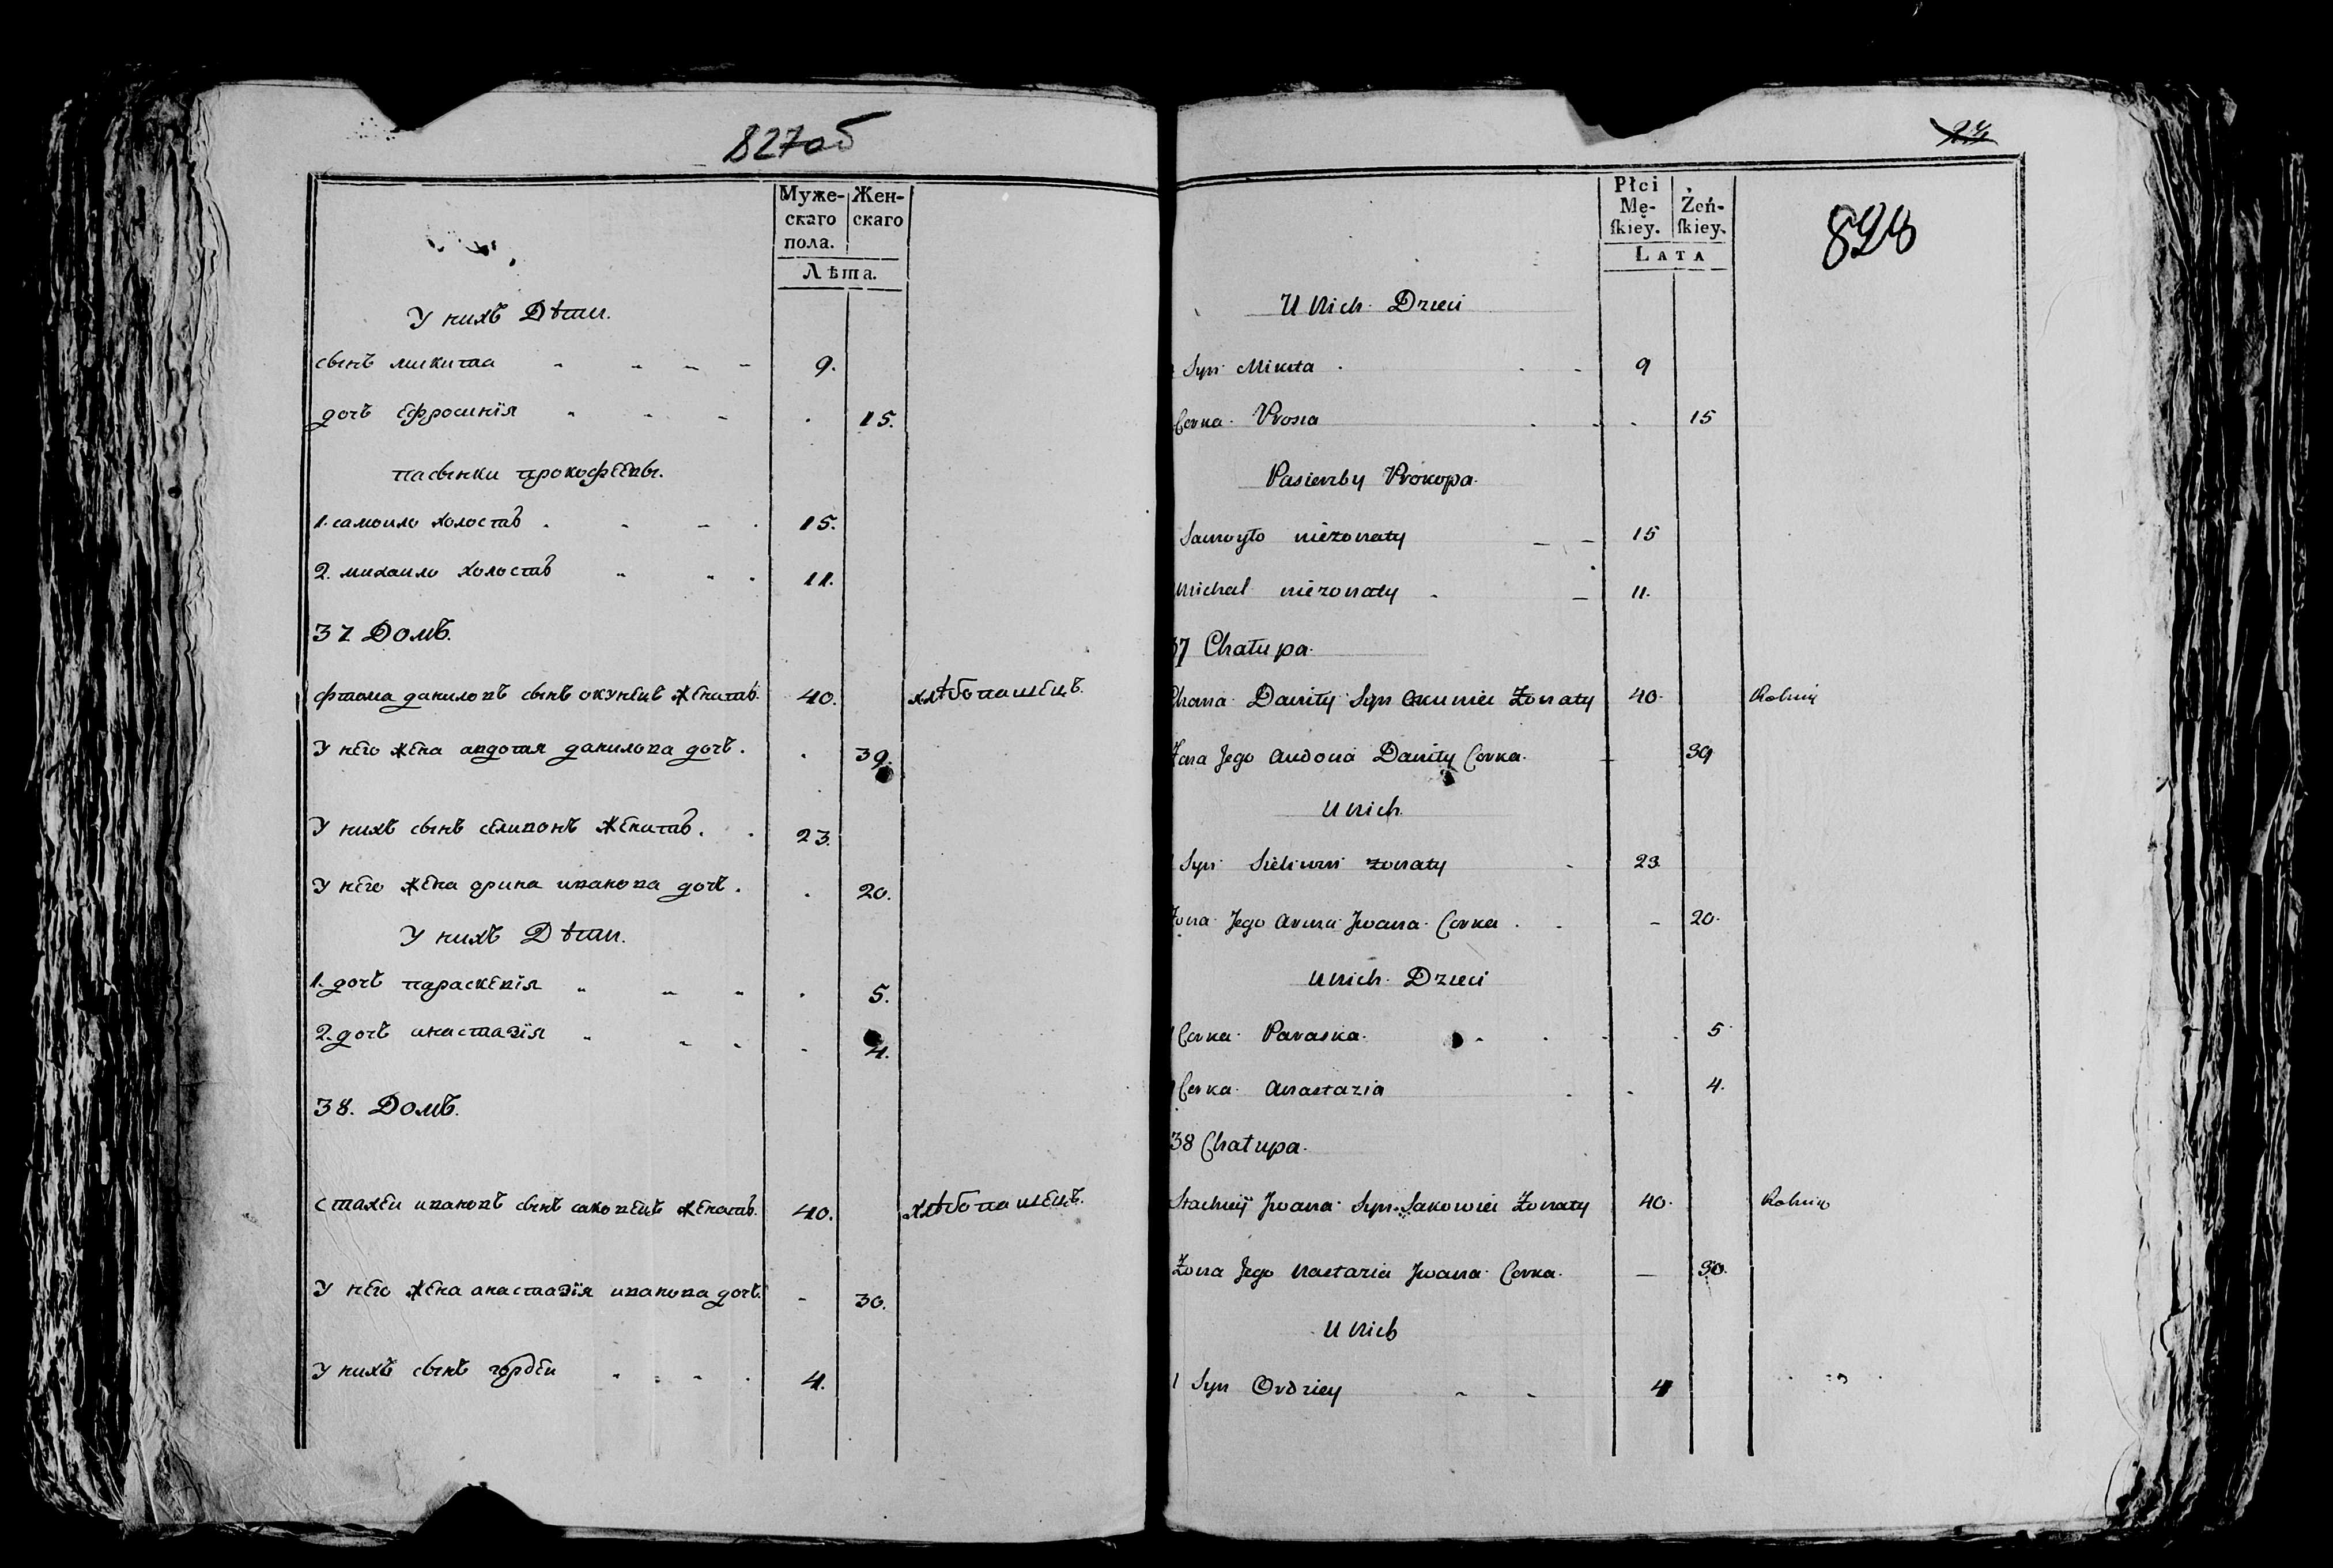 827об
Муже- Жен-
скаго скаго
пола.
Лѣта.
У нихъ Дѣти.
сынъ микита 9.
дочь ефросинїя 15.
пасынки прокофеевы.
1. самоило холостъ 15.
2. михаило холостъ 11.
37 Домъ.
фтома даниловъ сынъ окунецъ женатъ. 40. хлѣбопашецъ.
У него жена авдотья данилова дочь. 39.
У нихъ сынъ селивонъ женатъ. 23.
У него жена орина иванова дочь. 20.
У нихъ Дѣти.
1. дочь параскевїя 5.
2. дочь анастазїя 4.
38. Домъ.
стахеи ивановъ сынъ саковецъ женатъ. 40. хлѣбопашецъ.
У него жена анастазїя иванова дочь. 30.
У нихъ сынъ гордеи 4.
24
828
Płci
Mę- Żeń-
skiey. skiey.
LATA
U Nich Dzieci
Syn Mikita 9
Corka Prosia 15
Pasierzby Prokopa
Samoyło nieżonaty 15
Michal nieżonaty 11.
37 Chałupa
Danily Syn Okuniec Żonaty 40 Rolnik
Żona Jego Audocia Daniły Corka 39
U Nich.
Syn Sieliwon żonaty 23
Żona Jego Arina Jwana Corka 20
U Nich Dzieci
Corka Paraska 5
Corka Anastazia 4.
38 Chałupa.
Stachiey Jwana Syn Sakowiec Żonaty 40 Rolnik
Żona Jego Nastazia Jwana Corka 30.
U Nich
1 Syn Ordziey 4